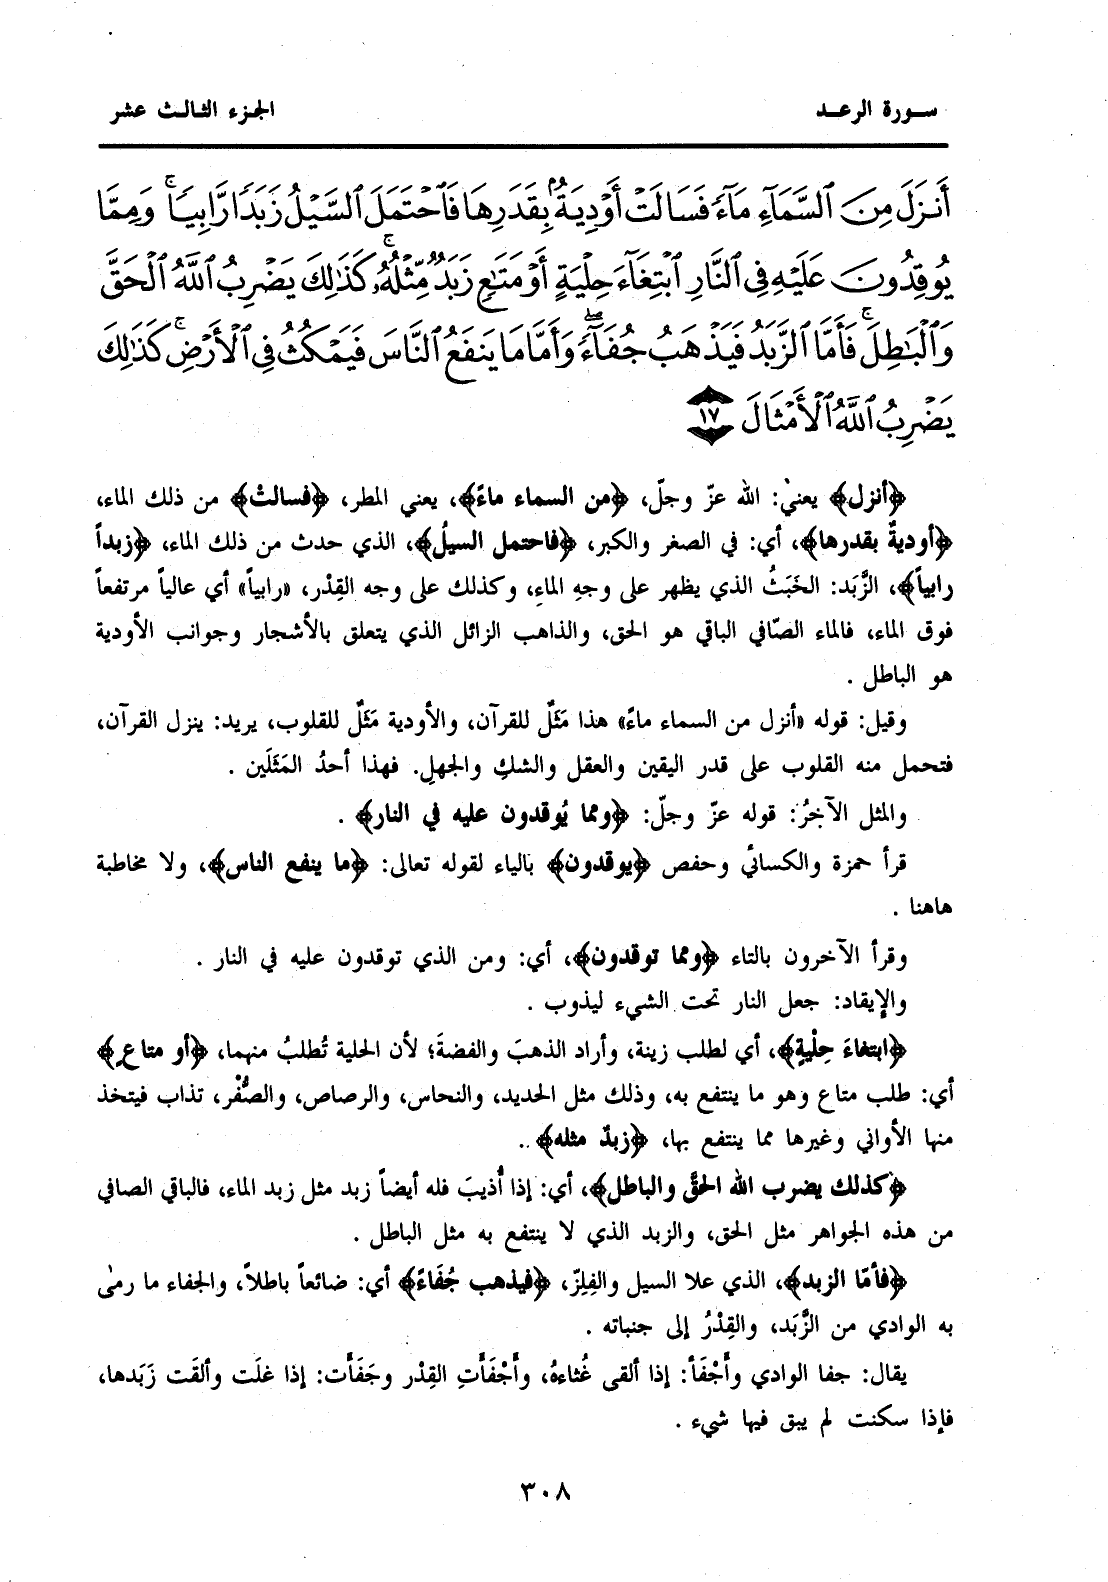 سورة الرعد
الجزء الثالث عشر
أَنزَلَ مِنَ ٱلسَّمَآءِ مَآءً فَسَالَتْ أَوْدِيَةٌۢ بِقَدَرِهَا فَٱحْتَمَلَ ٱلسَّيْلُ زَبَدًا رَّابِيًا ۚ وَمِمَّا
يُوقِدُونَ عَلَيْهِ فِى ٱلنَّارِ ٱبْتِغَآءَ حِلْيَةٍ أَوْ مَتَٰعٍ زَبَدٌ مِّثْلُهُۥ ۚ كَذَٰلِكَ يَضْرِبُ ٱللَّهُ ٱلْحَقَّ
وَٱلْبَٰطِلَ ۚ فَأَمَّا ٱلزَّبَدُ فَيَذْهَبُ جُفَآءً ۖ وَأَمَّا مَا يَنفَعُ ٱلنَّاسَ فَيَمْكُثُ فِى ٱلْأَرْضِ ۚ كَذَٰلِكَ
يَضْرِبُ ٱللَّهُ ٱلْأَمْثَالَ ١٧
﴿أنزل﴾ يعني: الله عزّ وجلّ، ﴿من السماء ماءً﴾، يعني المطر، ﴿فسالتْ﴾ من ذلك الماء،
﴿أوديةٌ بقدرها﴾، أي: في الصغر والكبر، ﴿فاحتمل السيلُ﴾، الذي حدث من ذلك الماء، ﴿زبداً
رابياً﴾، الزَّبَد: الخَبَثُ الذي يظهر على وجهِ الماءِ، وكذلك على وجه القِدْر، «رابياً» أي عالياً مرتفعاً
فوق الماء، فالماء الصّافي الباقي هو الحق، والذاهب الزائل الذي يتعلق بالأشجار وجوانب الأودية
هو الباطل .
وقيل: قوله «أنزل من السماء ماءً» هذا مَثَلٌ للقرآن، والأودية مَثَلٌ للقلوب، يريد: ينزل القرآن،
فتحمل منه القلوب على قدر اليقين والعقل والشكِ والجهلِ. فهذا أحدُ المَثَلَين .
والمثل الآخِرُ: قوله عزّ وجلّ: ﴿ومما يُوقدون عليه في النار﴾ .
قرأ حمزة والكسائي وحفص ﴿يوقدون﴾ بالياء لقوله تعالى: ﴿ما ينفع الناس﴾، ولا مخاطبة
هاهنا .
وقرأ الآخرون بالتاء ﴿ومما توقدون﴾، أي: ومن الذي توقدون عليه في النار .
والإيقاد: جعل النار تحت الشيء ليذوب .
﴿ابتغاءَ حِلْيةٍ﴾، أي لطلب زينة، وأراد الذهبَ والفضةَ؛ لأن الحلية تُطلبُ منهما، ﴿أو متاعٍ﴾
أي: طلب متاع وهو ما ينتفع به، وذلك مثل الحديد، والنحاس، والرصاص، والصُّفْر، تذاب فيتخذ
منها الأواني وغيرها مما ينتفع بها، ﴿زبدٌ مثله﴾ ..
﴿كذلك يضرب الله الحقَّ والباطل﴾، أي: إذا أُذيبَ فله أيضاً زبد مثل زبد الماء، فالباقي الصافي
من هذه الجواهر مثل الحق، والزبد الذي لا ينتفع به مثل الباطل .
﴿فأمّا الزبد﴾، الذي علا السيل والفِلِزّ، ﴿فيذهب جُفَاءً﴾ أي: ضائعاً باطلاً، والجفاء ما رمىٰ
به الوادي من الزَّبَد، والقِدْرُ إلى جنباته .
يقال: جفا الوادي وأَجْفَأ: إذا ألقى غُثاءهُ، وأَجْفَأَتِ القِدْر وجَفَأَت: إذا غلَت وألقَت زَبَدها،
فإذا سكنت لم يبق فيها شيء .
٣٠٨